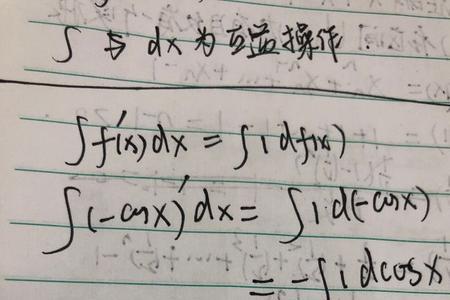 ∫ 与 dx 为互逆操作
∫f'(x)dx = ∫1 df(x)
∫(-cosx)'dx = ∫1 d(-cosx)
= -∫1 dcosx